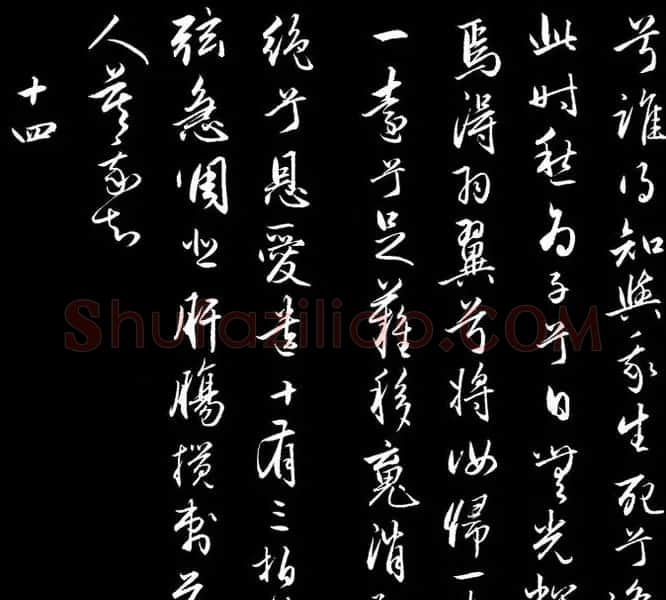 兮誰得知與我生死兮
此時愁為子兮日無光輝
焉得羽翼兮將汝歸一
一遠兮足難移魂消
絕兮恩愛遺十有三拍
弦急調悲肝腸攪刺兮
人莫我知
十四
Shufaziliao.COM